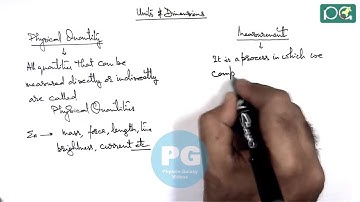 Units & Dimensions
Physical Quantity
→ All quantities that can be
measured directly or indirectly
are called
Physical Quantities
Ex → mass, force, length, time
brightness, current etc
Measurement
It is a process in which we
comp
PG
Physics Galaxy